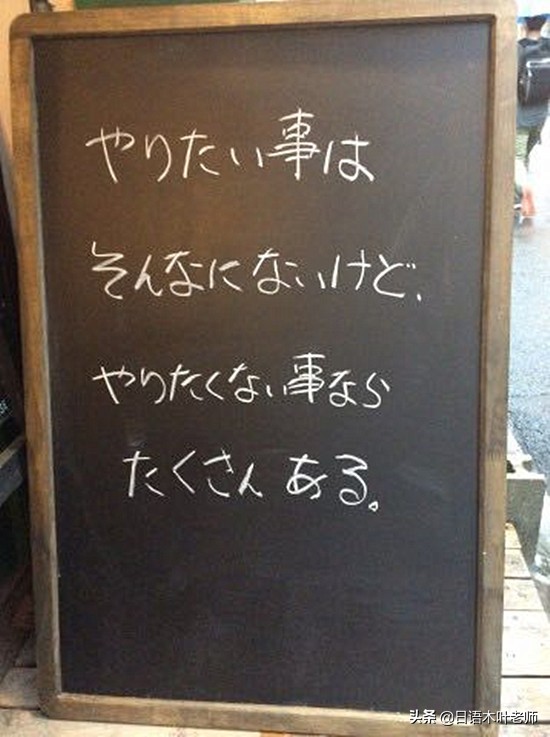 やりたい事は
そんなにないけど、
やりたくない事なら
たくさんある。
头条 @日语木叶老师